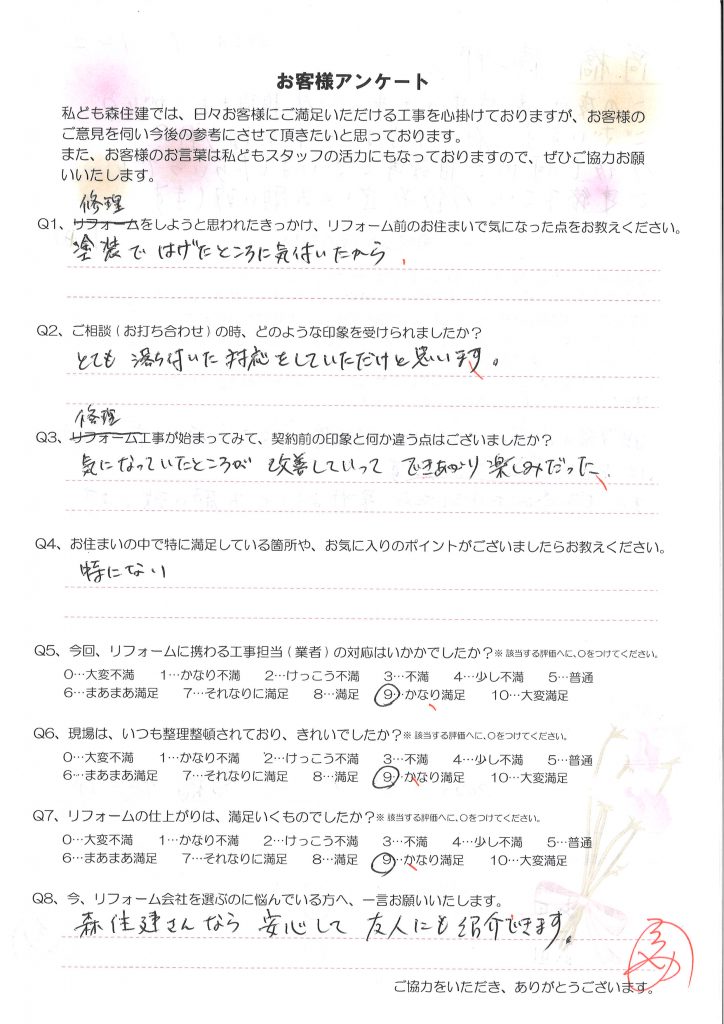 お客様アンケート
私ども森住建では、日々お客様にご満足いただける工事を心掛けておりますが、お客様の
ご意見を伺い今後の参考にさせて頂きたいと思っております。
また、お客様のお言葉は私どもスタッフの活力にもなっておりますので、ぜひご協力お願
いいたします。
修理
Q1、リフォームをしようと思われたきっかけ、リフォーム前のお住まいで気になった点をお教えください。
塗装で はげたところに気付いたから
Q2、ご相談(お打ち合わせ)の時、どのような印象を受けられましたか?
とても 落ち付いた対応をしていただけと思います。
修理
Q3、リフォーム工事が始まってみて、契約前の印象と何か違う点はございましたか?
気になっていたところが 改善していって できあがり楽しみだった
Q4、お住まいの中で特に満足している箇所や、お気に入りのポイントがございましたらお教えください。
特にない
Q5、今回、リフォームに携わる工事担当(業者)の対応はいかかでしたか?※該当する評価へに、○をつけてください。
0…大変不満 1…かなり不満 2…けっこう不満 3…不満 4…少し不満 5…普通
6…まあまあ満足 7…それなりに満足 8…満足 9…かなり満足 10…大変満足
Q6、現場は、いつも整理整頓されており、きれいでしたか?※該当する評価へに、○をつけてください。
0…大変不満 1…かなり不満 2…けっこう不満 3…不満 4…少し不満 5…普通
6…まあまあ満足 7…それなりに満足 8…満足 9…かなり満足 10…大変満足
Q7、リフォームの仕上がりは、満足いくものでしたか?※該当する評価へに、○をつけてください。
0…大変不満 1…かなり不満 2…けっこう不満 3…不満 4…少し不満 5…普通
6…まあまあ満足 7…それなりに満足 8…満足 9…かなり満足 10…大変満足
Q8、今、リフォーム会社を選ぶのに悩んでいる方へ、一言お願いいたします。
森住建さんなら 安心して 友人にも紹介できます。
ご協力をいただき、ありがとうございます。